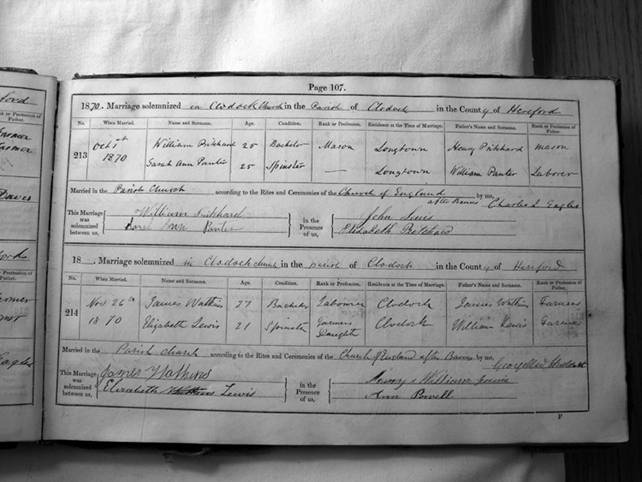 Page 107.
1870. Marriage solemnized in Clodock Church in the Parish of Clodock in the County of Hereford
No. When Married. Name and Surname. Age. Condition. Rank or Profession. Residence at the Time of Marriage. Father's Name and Surname. Rank or Profession of Father.
213 Oct 1st 1870 William Pritchard 25 Bachelor Mason Longtown Henry Pritchard mason
Sarah Ann Panter 25 Spinster — Longtown William Panter Laborer
Married in the Parish Church according to the Rites and Ceremonies of the Church of England after Banns by me,
Charles L Eagles
This Marriage was solemnized between us, William Pritchard
Ann Panter
in the Presence of us, John Lewis
Elizabeth Pritchard
18 . Marriage solemnized in Clodock church in the parish of Clodock in the County of Hereford
No. When Married. Name and Surname. Age. Condition. Rank or Profession. Residence at the Time of Marriage. Father's Name and Surname. Rank or Profession of Father.
214 Nov 26th 1870 James Watkins 27 Bachelor Labourer Clodock James Watkins Farmer
Elizabeth Lewis 21 Spinster Farmers Daughter Clodock William Lewis Farmer
Married in the Parish church according to the Rites and Ceremonies of the Church of England after Banns by me,
This Marriage was solemnized between us, James Watkins
Elizabeth Lewis
in the Presence of us, Henry Williams
Ann Powell
F